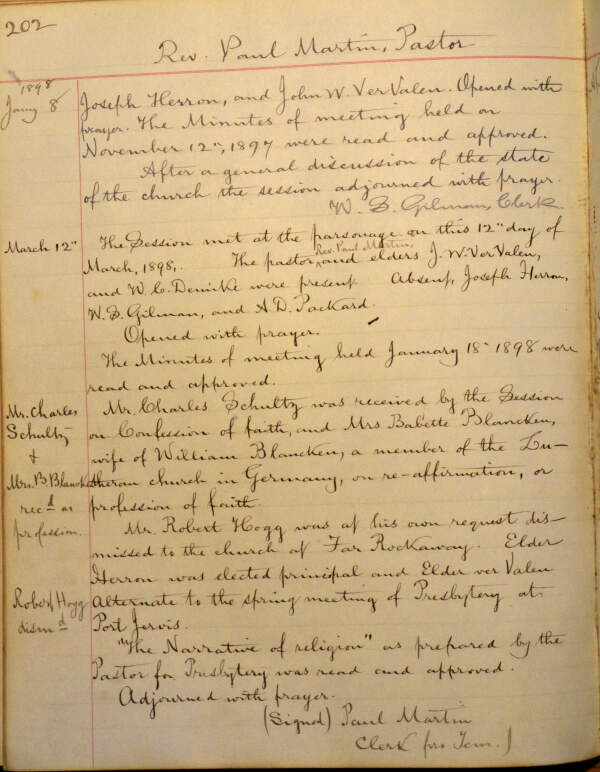 202
Rev. Paul Martin, Pastor
1898
Jany 8
Joseph Herron, and John W. Ver Valen. Opened with
prayer. The Minutes of meeting held on
November 12", 1897 were read and approved.
After a general discussion of the state
of the church the session adjourned with prayer.
W. S. Gilman, Clerk
March 12"
The Session met at the parsonage on this 12" day of
March, 1898,. The pastor, Rev. Paul Martin, and elders J. W. Ver Valen,
and W. C. Denicke were present. Absent, Joseph Herron,
W. S. Gilman, and A. D. Packard.
Opened with prayer.
The Minutes of meeting held January 18" 1898 were
read and approved.
Mr. Charles
Schultz
&
Mrs. B. Blancken
rec^d as
profession.
Mr. Charles Schultz was received by the Session
on Confession of faith, and Mrs Babette Blancken,
wife of William Blancken, a member of the Lu-
theran church in Germany, on re-affirmation, or
profession of faith.
Mr. Robert Hogg was at his own request dis-
missed to the church at Far Rockaway. Elder
Herron was elected principal and Elder ver Valen
Robert Hogg
dism^d
Alternate to the spring meeting of Presbytery at
Port Jervis.
"The Narrative of religion" as prepared by the
Pastor for Presbytery was read and approved.
Adjourned with prayer.
(Signed) Paul Martin
Clerk pro Tem. )